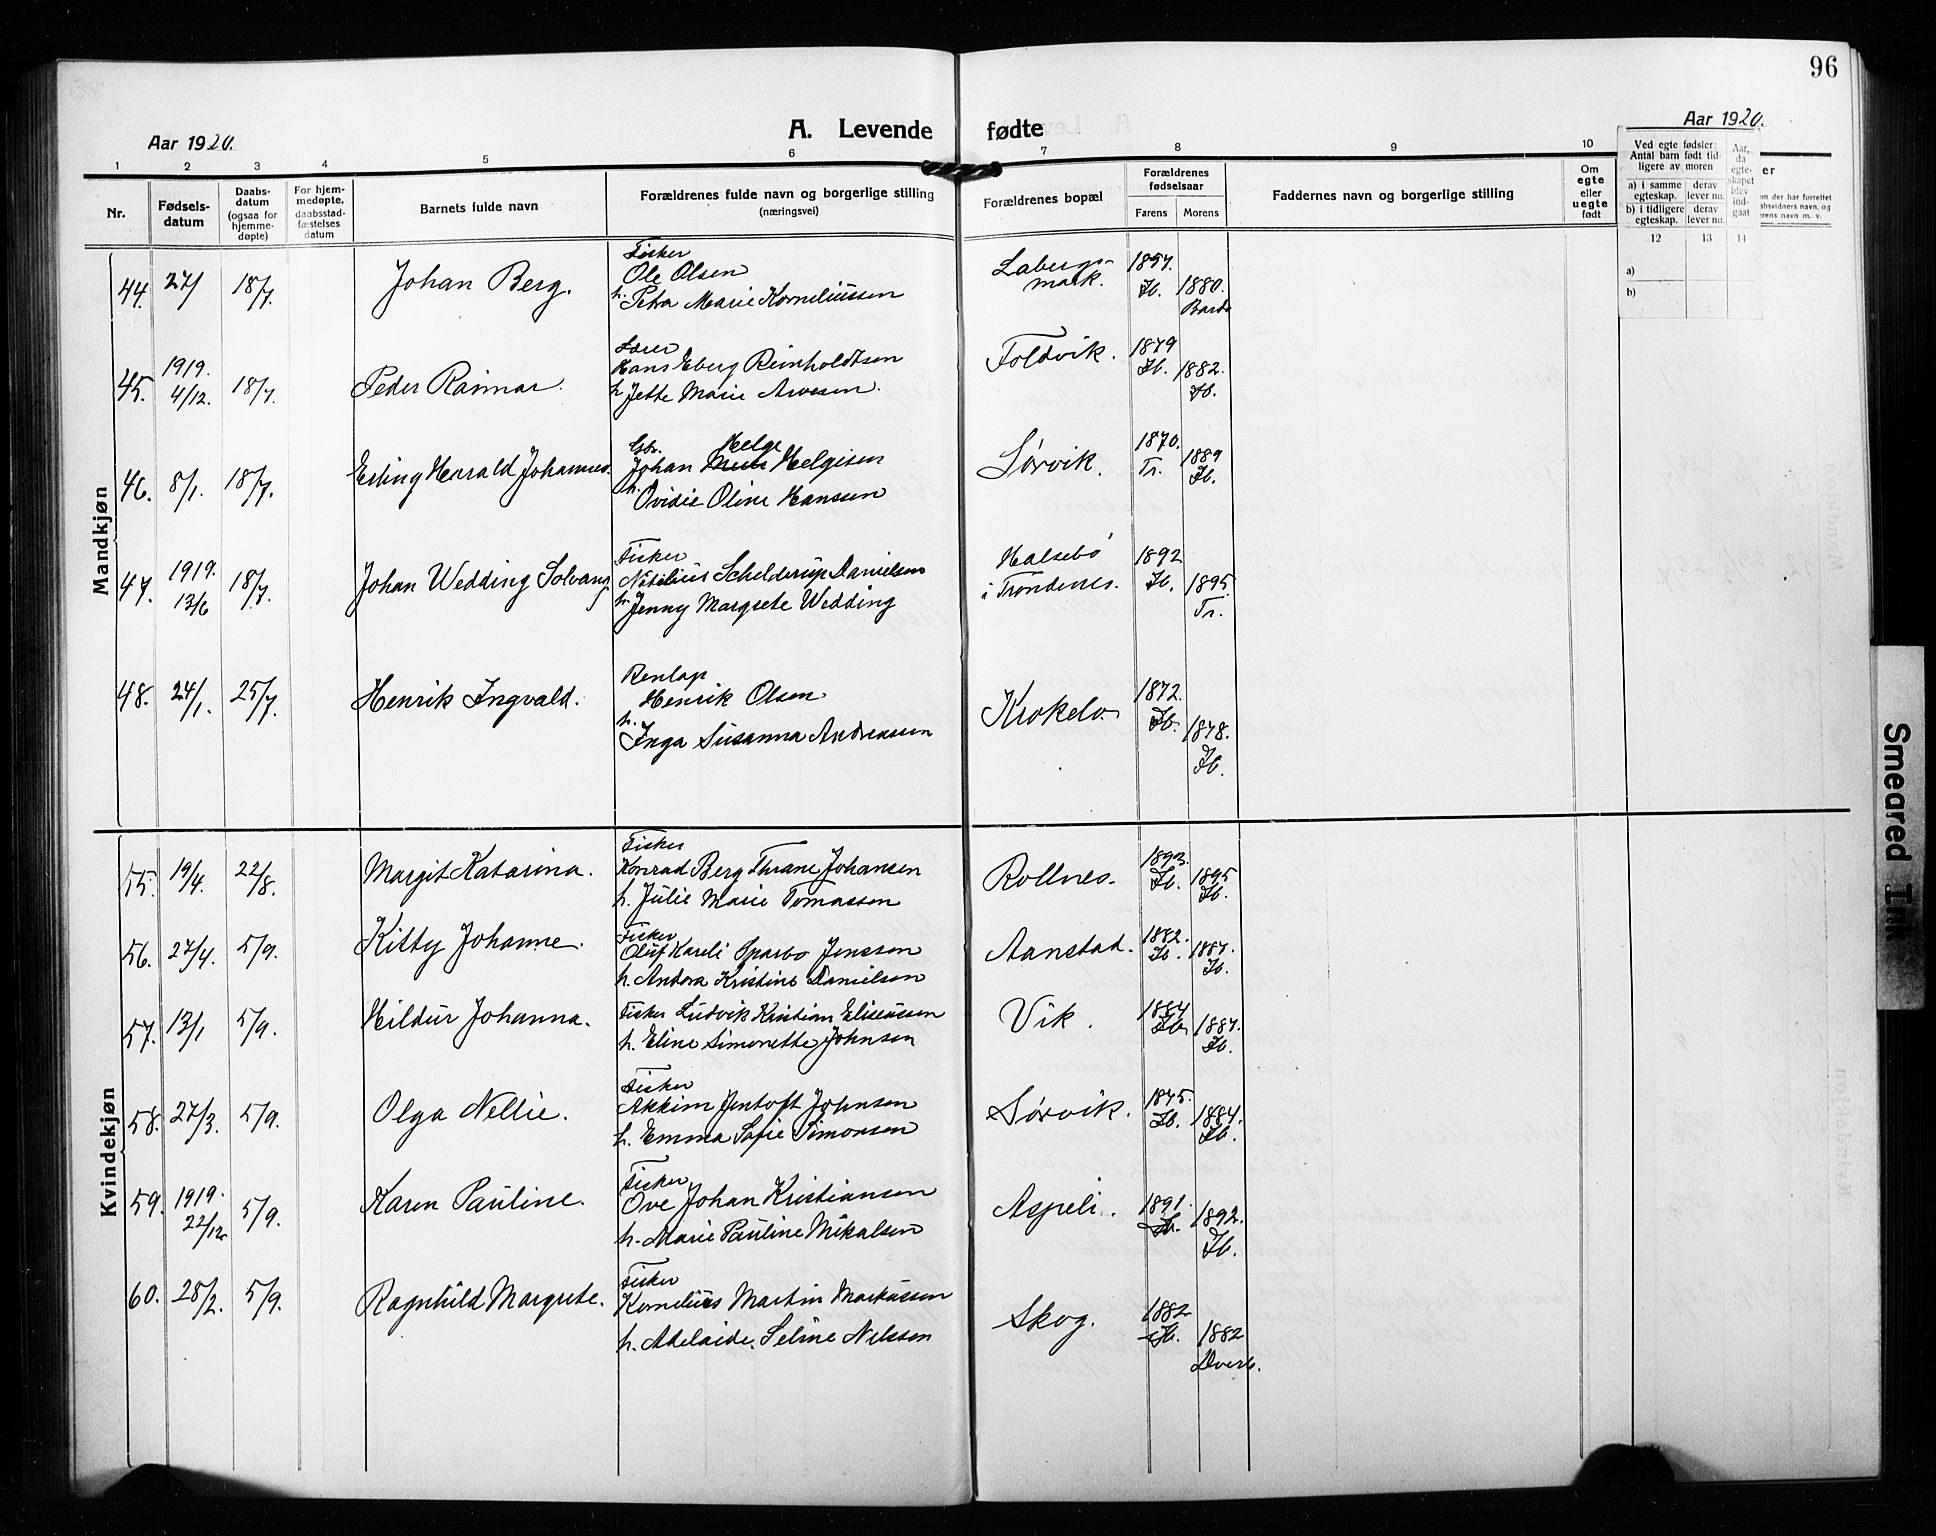 96
Aar 1920.
A. Levende fødte
Aar 1920.
1 2 3 4 5 6 7 8 9 10
Nr.
Fødsels-
datum
Daabs-
datum
(ogsaa for
hjemme-
døpte)
For hjem-
medøpte,
daabsstad-
fæstelses
datum
Barnets fulde navn
Forældrenes fulde navn og borgerlige stilling
(næringsvei)
Forældrenes bopæl
Forældrenes
fødselsaar
Farens Morens
Faddernes navn og borgerlige stilling
Om
egte
eller
uegte
født
Ved egte fødsler:
Antal barn født tid-
ligere av moren
a) i samme
egteskap.
derav
lever nu.
b) i tidligere
egteskap.
derav
lever nu.
Aar,
da
egte-
skapet
blev
ind-
gaat
12 13 14
a)
b)
er
en der har forrettet
absvidners navn, og
erens navn m. v.
Mandkjøn
44. 27/1 18/7. Johan Berg.
Fisker
Ole Olsen
h. Petra Marie Korneliussen
Labergs-
mark.
1857. Ib. 1880. Bardo
45. 1919. 4/12. 18/7. Peder Raimar.
Lærer
Hans Eberg Reinholdtsen
h. Jette Marie Arvesen.
Foldvik. 1879 Ib. 1882. Ib.
46. 8/1. 18/7. Erling Harald Johannes.
Gbr. Helge
Johan Helgesen
h. Ovidie Oline Hanssen
Sørvik. 1870. Tr. 1889 Ib.
47. 1919. 13/6 18/7. Johan Wedding Solvang
Fisker
Schelderup Danielsen
h. Jenny Margrete Wedding
Halsebø
i Trondenes.
1892 Ib. 1895. Tr.
48. 24/1. 25/7. Henrik Ingvald.
Renlap
Henrik Olsen
h.
Inga Susanna Andreassen
Krokelv. 1872. Ib. 1878. Ib.
Kvindekjøn
55. 19/4. 22/8. Margit Katarina.
Fisker
Konrad Berg Thrane Johansen
h. Julie Marie Tomassen
Rollnes. 1893. Ib. 1895 Ib.
56. 27/4. 5/9. Kitty Johanne.
Fisker
Oluf Kareli Sparbo Jenssen
h. Andora Kristine Danielsen
Aanstad. 1882. Ib. 1887. Ib.
57. 13/1 5/9. Hildur Johanna.
Fisker Ludvik Kristian Eliseussen
h. Eline Simonette Johnsen
Vik. 1884 Ib. 1887. Ib.
58. 27/3. 5/9. Olga Nellie.
Fisker
Akkim Jentoft Johnsen
h. Emma Sofie Simonsen
Sørvik. 1875. Ib. 1884. Ib.
59. 1919. 22/12 5/9. Karen Pauline.
Fisker
Ove Johan Kristiansen
h. Marie Pauline Mikalsen
Aspeli. 1891. Ib. 1892. Ib.
60. 28/2. 5/9. Ragnhild Margrete.
Fisker
Kornelius Martin Markussen
h. Adelaide Seline Nilssen
Skog. 1882 Ib. 1882 Dverb.
Smeared Ink